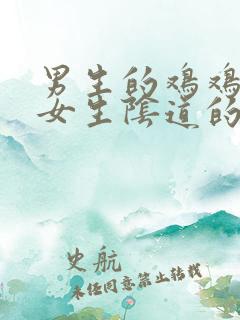 男生的鸡鸡
女生阴道的
史航
未经同意禁止转载